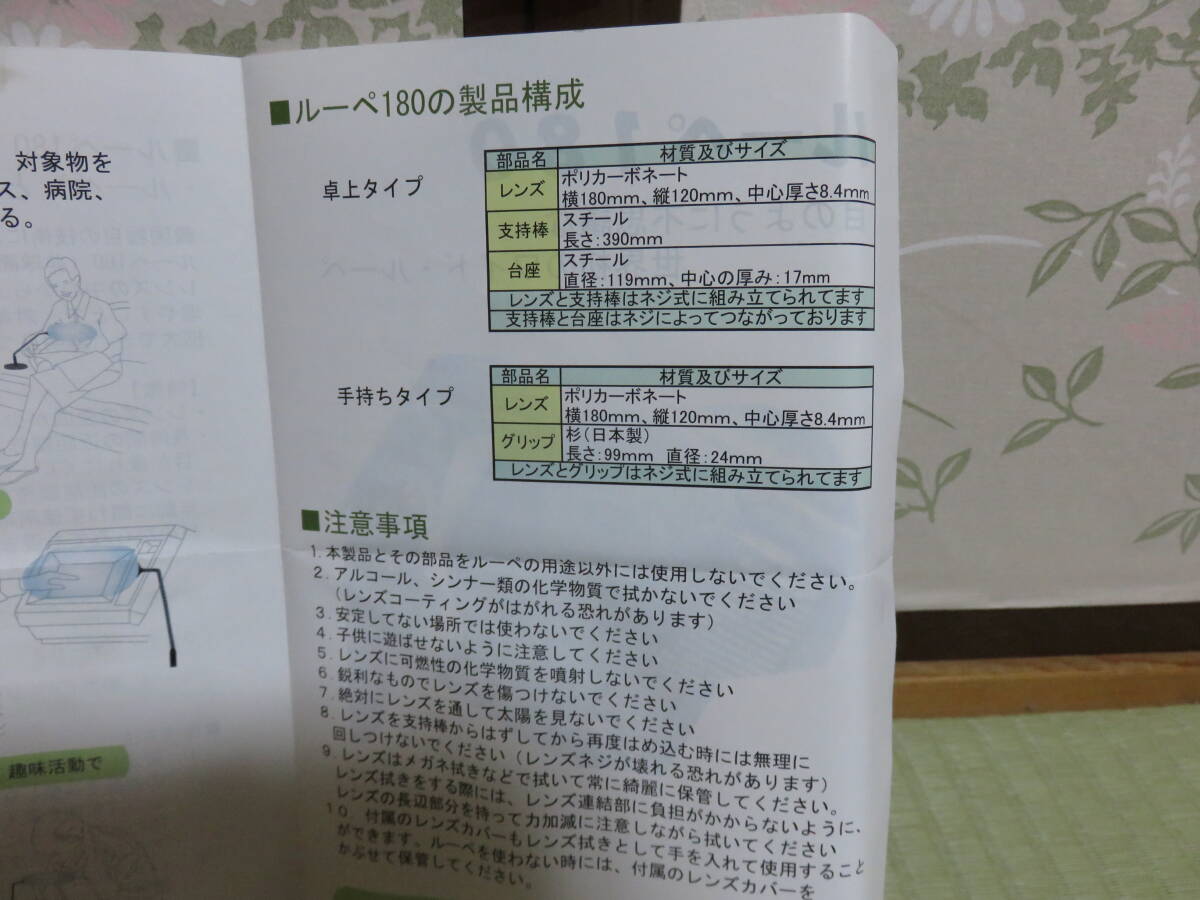 対象物を
ス、病院、
る。
趣味活動で
■ルーペ180の製品構成
卓上タイプ
部品名 材質及びサイズ
レンズ ポリカーボネート
横180mm、縦120mm、中心厚さ8.4mm
支持棒 スチール
長さ:390mm
台座 スチール
直径:119mm、中心の厚み:17mm
レンズと支持棒はネジ式に組み立てられてます
支持棒と台座はネジによってつながっております
手持ちタイプ
部品名 材質及びサイズ
レンズ ポリカーボネート
横180mm、縦120mm、中心厚さ8.4mm
グリップ 杉(日本製)
長さ:99mm 直径:24mm
レンズとグリップはネジ式に組み立てられてます
■注意事項
1.本製品とその部品をルーペの用途以外には使用しないでください。
2.アルコール、シンナー類の化学物質で拭かないでください
(レンズコーティングがはがれる恐れがあります)
3.安定してない場所では使わないでください
4.子供に遊ばせないように注意してください
5.レンズに可燃性の化学物質を噴射しないでください
6.鋭利なものでレンズを傷つけないでください
7.絶対にレンズを通して太陽を見ないでください
8.レンズを支持棒からはずしてから再度はめ込む時には無理に
回しつけないでください(レンズネジが壊れる恐れがあります)
9.レンズはメガネ拭きなどで拭いて常に綺麗に保管してください。
レンズ拭きをする際には、レンズ連結部に負担がかからないように、
レンズの長辺部分を持って力加減に注意しながら拭いてください
10.付属のレンズカバーもレンズ拭きとして手を入れて使用すること
ができます。ルーペを使わない時には、付属のレンズカバーを
かぶせて保管してください。